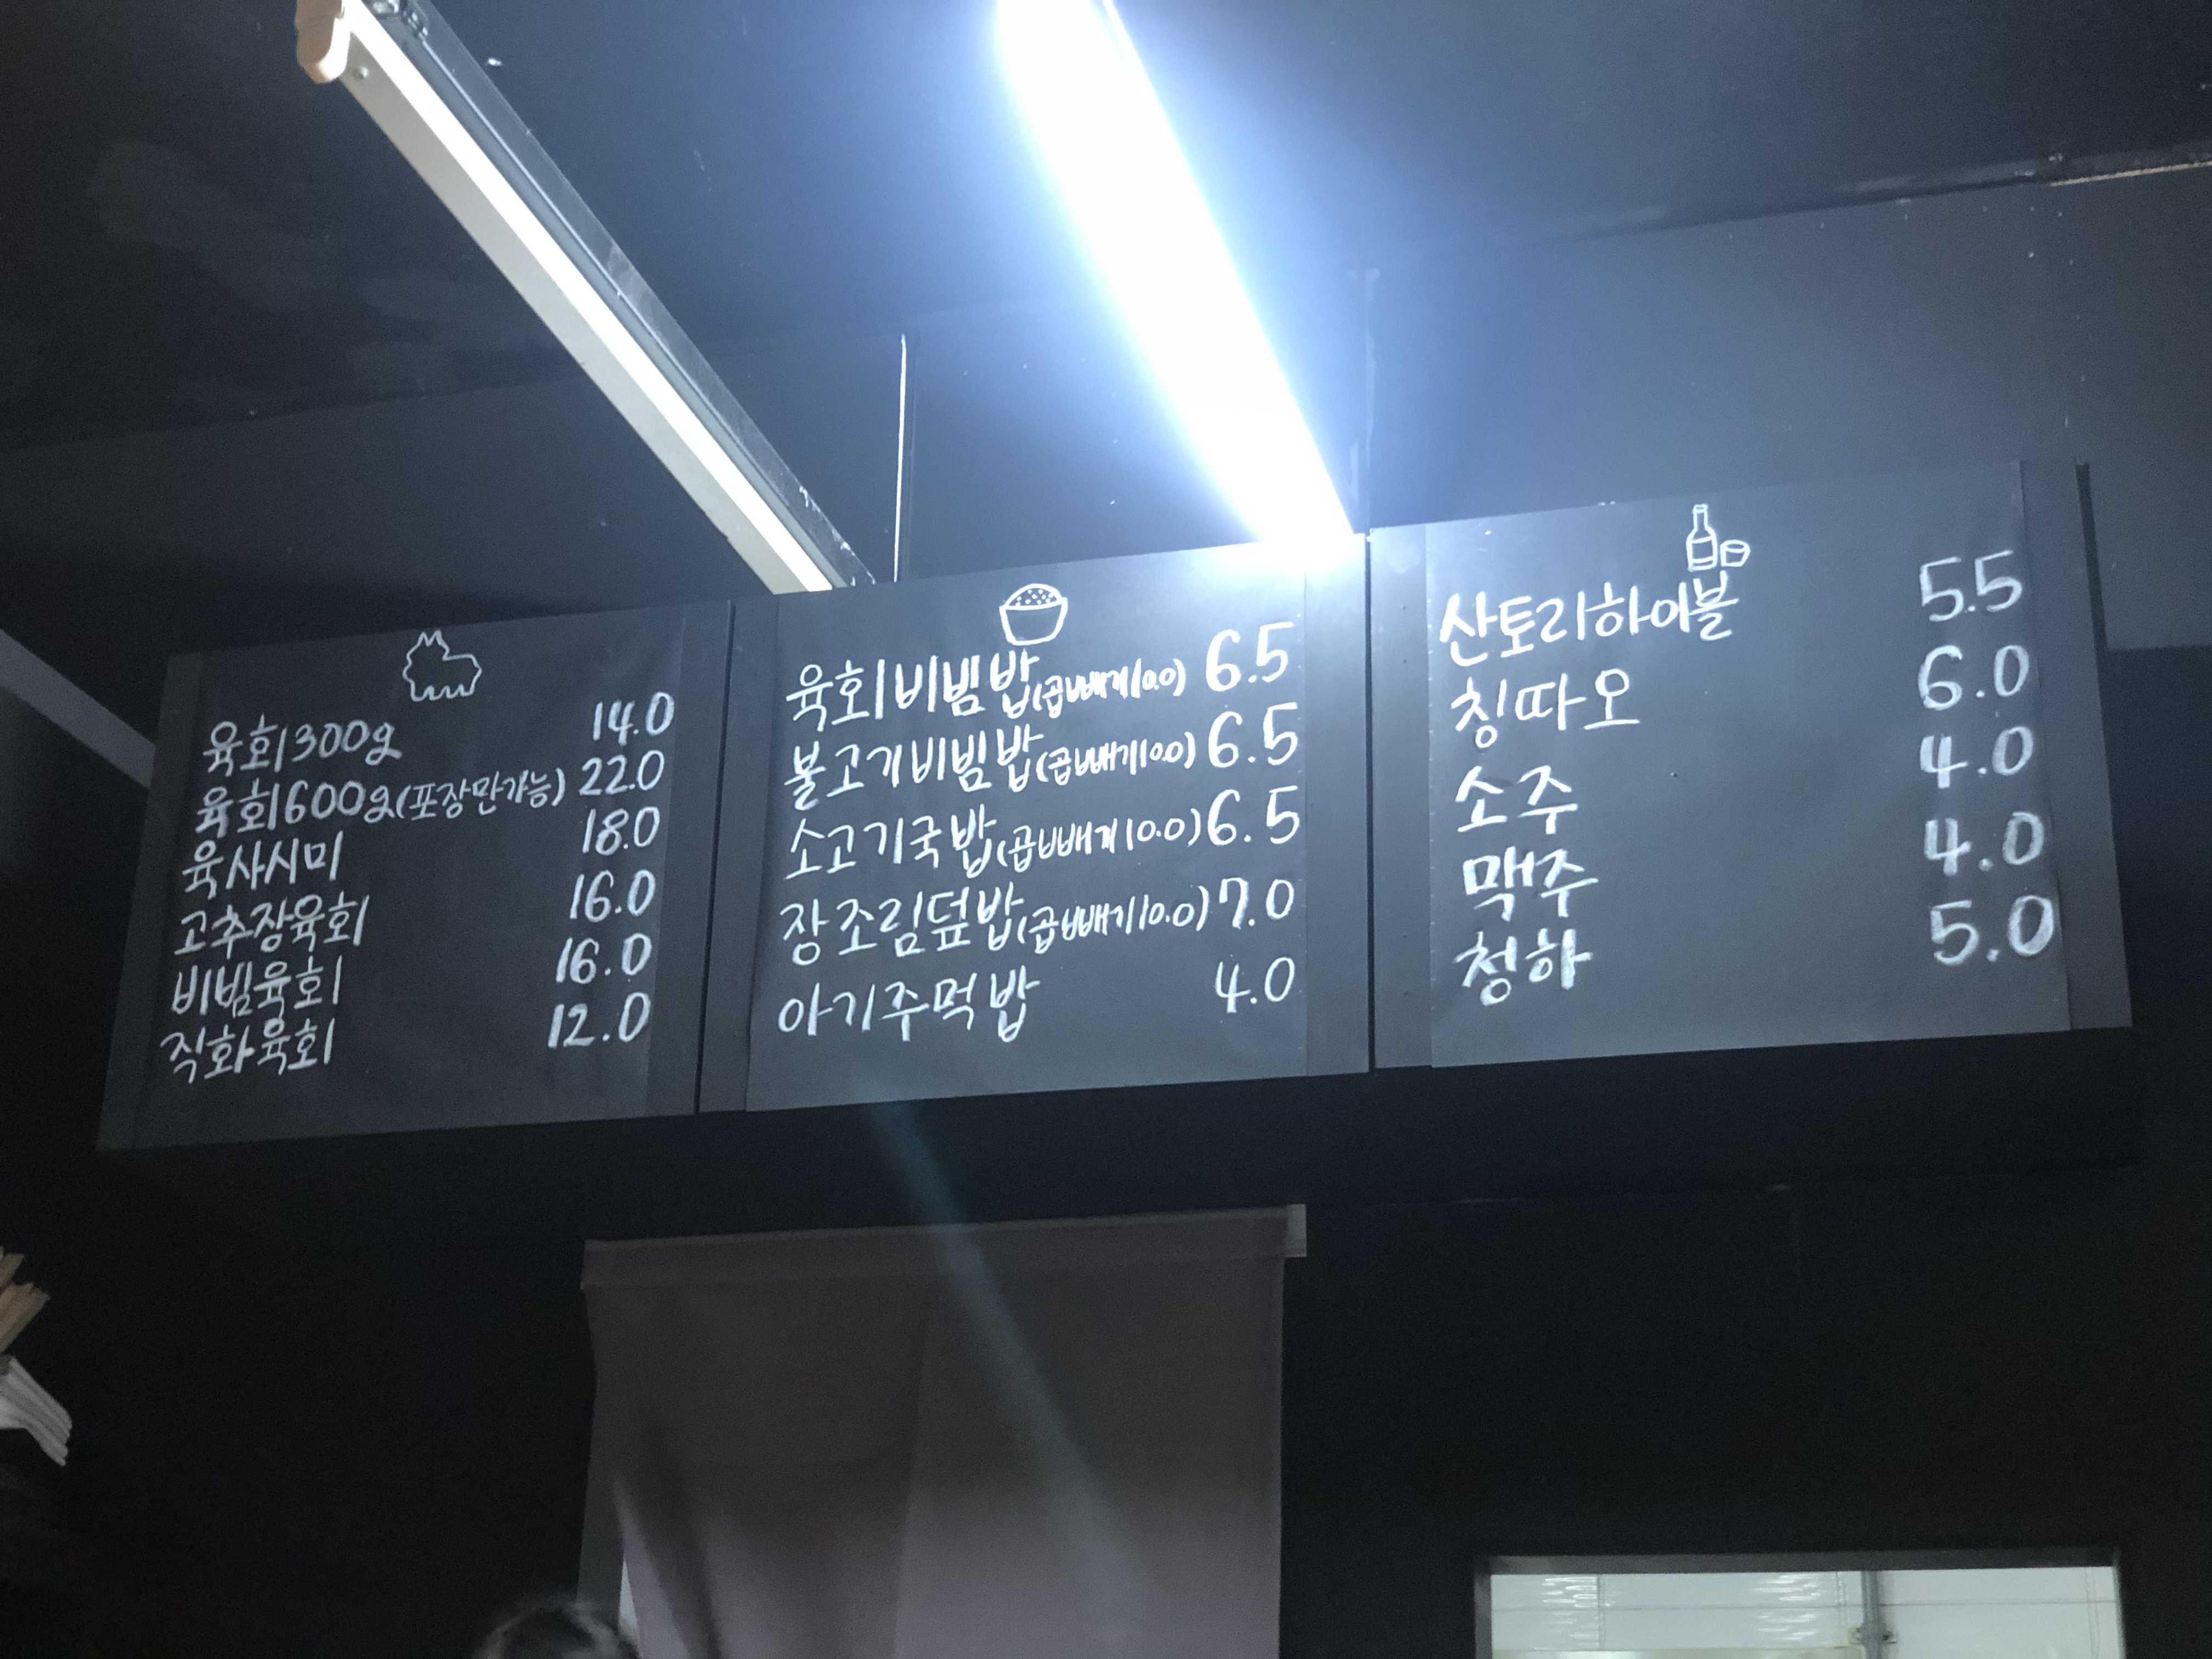 육회300g 14.0
육회600g(포장만가능) 22.0
육사시미 18.0
고추장육회 16.0
비빔육회 16.0
직화육회 12.0
육회비빔밥(곱빼기10.0) 6.5
불고기비빔밥(곱빼기10.0) 6.5
소고기국밥(곱빼기10.0) 6.5
장조림덮밥(곱빼기10.0) 7.0
아기주먹밥 4.0
산토리하이볼 5.5
칭따오 6.0
소주 4.0
맥주 4.0
청하 5.0